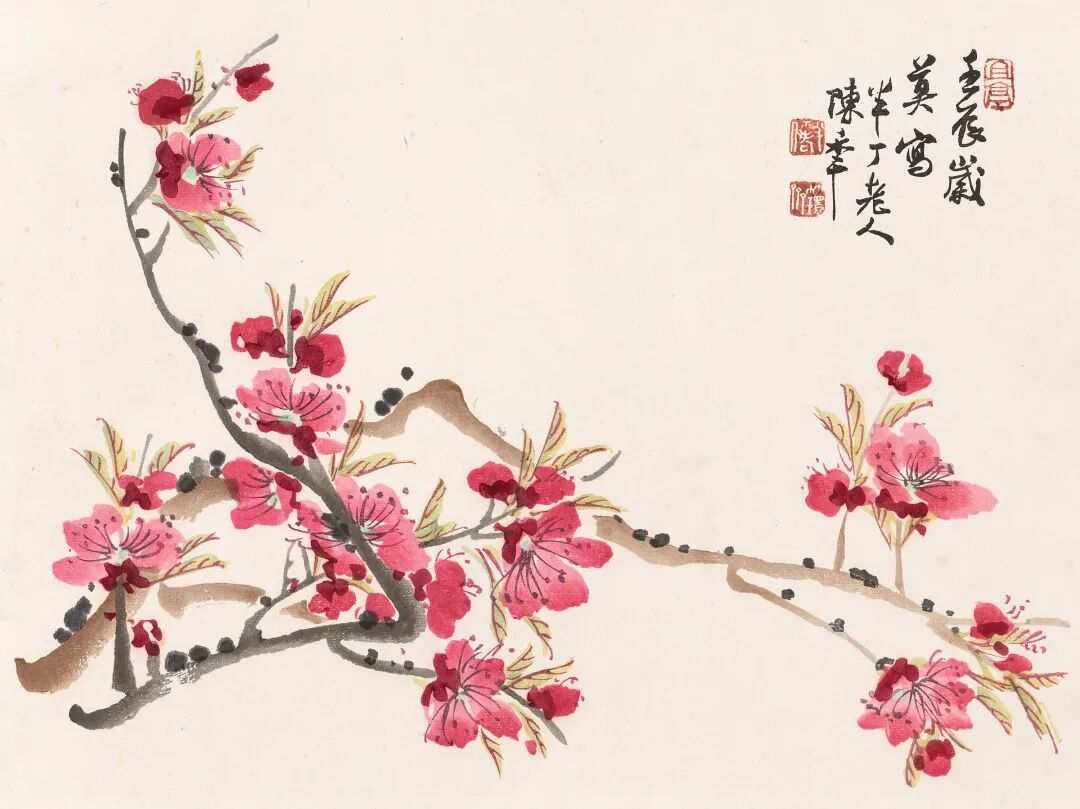 壬辰歲
莫寫
半丁老人
陳秊